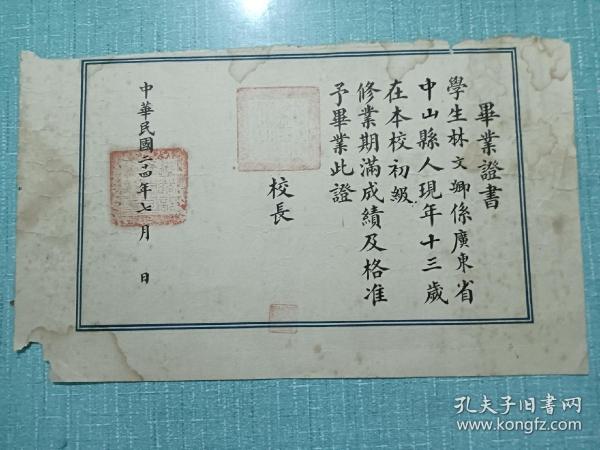 畢業證書
學生林文卿係廣東省
中山縣人現年十三歲
在本校初級
修業期滿成績及格准
予畢業此證
校長
中華民國二十四年七月 日
孔夫子旧书网
www.kongfz.com